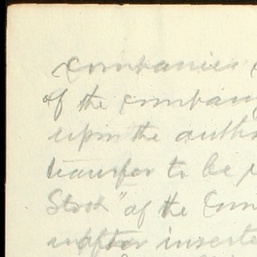 companies
of the company
upon the
transfer to be
Stock" of the Com